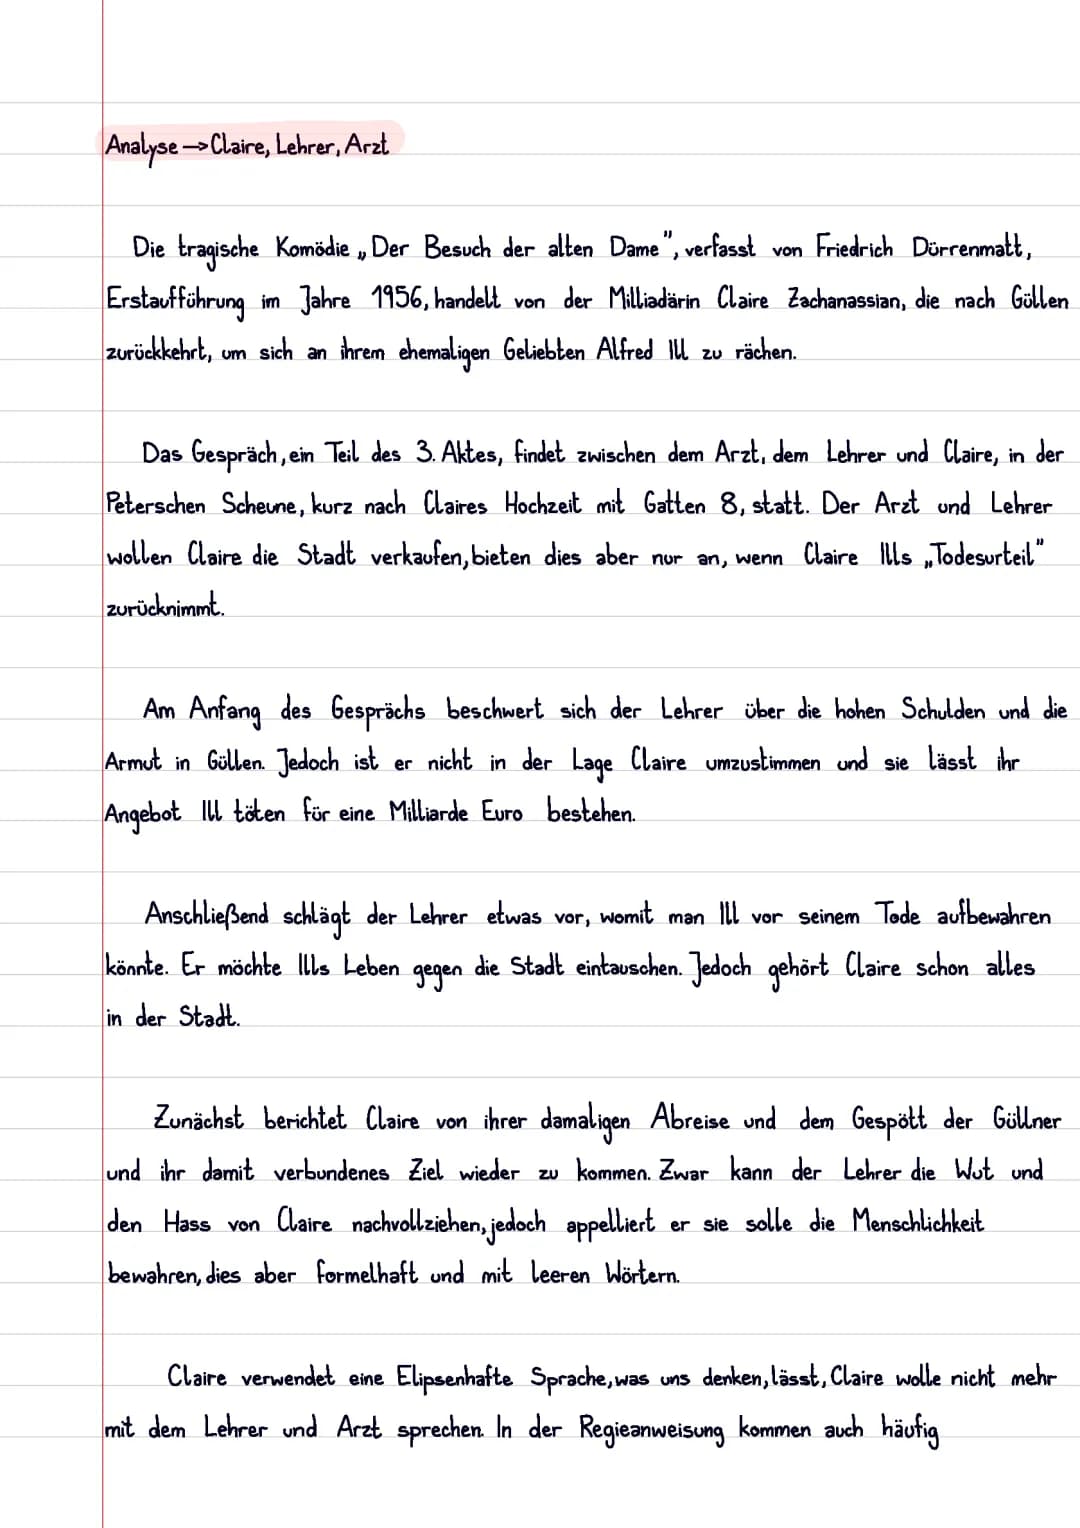 Analyse → Claire, Lehrer, Arzt
Die tragische Komödie „Der Besuch der alten Dame", verfasst von Friedrich Dürrenmatt,
Erstaufführung im Jahre 1956, handelt von der Milliadärin Claire Zachanassian, die nach Güllen
zurückkehrt, um sich an ihrem ehemaligen Geliebten Alfred Ill zu rächen.
Das Gespräch, ein Teil des 3. Aktes, findet zwischen dem Arzt, dem Lehrer und Claire, in der
Peterschen Scheune, kurz nach Claires Hochzeit mit Gatten 8, statt. Der Arzt und Lehrer
wollen Claire die Stadt verkaufen, bieten dies aber nur an, wenn Claire Ills „Todesurteil"
zurücknimmt.
Am Anfang des Gesprächs beschwert sich der Lehrer über die hohen Schulden und die
Armut in Güllen. Jedoch ist er nicht in der Lage Claire umzustimmen und sie lässt ihr
Angebot Ill töten für eine Milliarde Euro bestehen.
Anschließend schlägt der Lehrer etwas vor, womit man Ill vor seinem Tode aufbewahren
könnte. Er möchte Ills Leben gegen die Stadt eintauschen. Jedoch gehört Claire schon alles
in der Stadt.
Zunächst berichtet Claire von ihrer damaligen Abreise und dem Gespött der Güllner
und ihr damit verbundenes Ziel wieder zu kommen. Zwar kann der Lehrer die Wut und
den Hass von Claire nachvollziehen, jedoch appelliert er sie solle die Menschlichkeit
bewahren, dies aber formelhaft und mit leeren Wörtern.
Claire verwendet eine Elipsenhafte Sprache, was uns denken, lässt, Claire wolle nicht mehr
mit dem Lehrer und Arzt sprechen. In der Regieanweisung kommen auch häufig